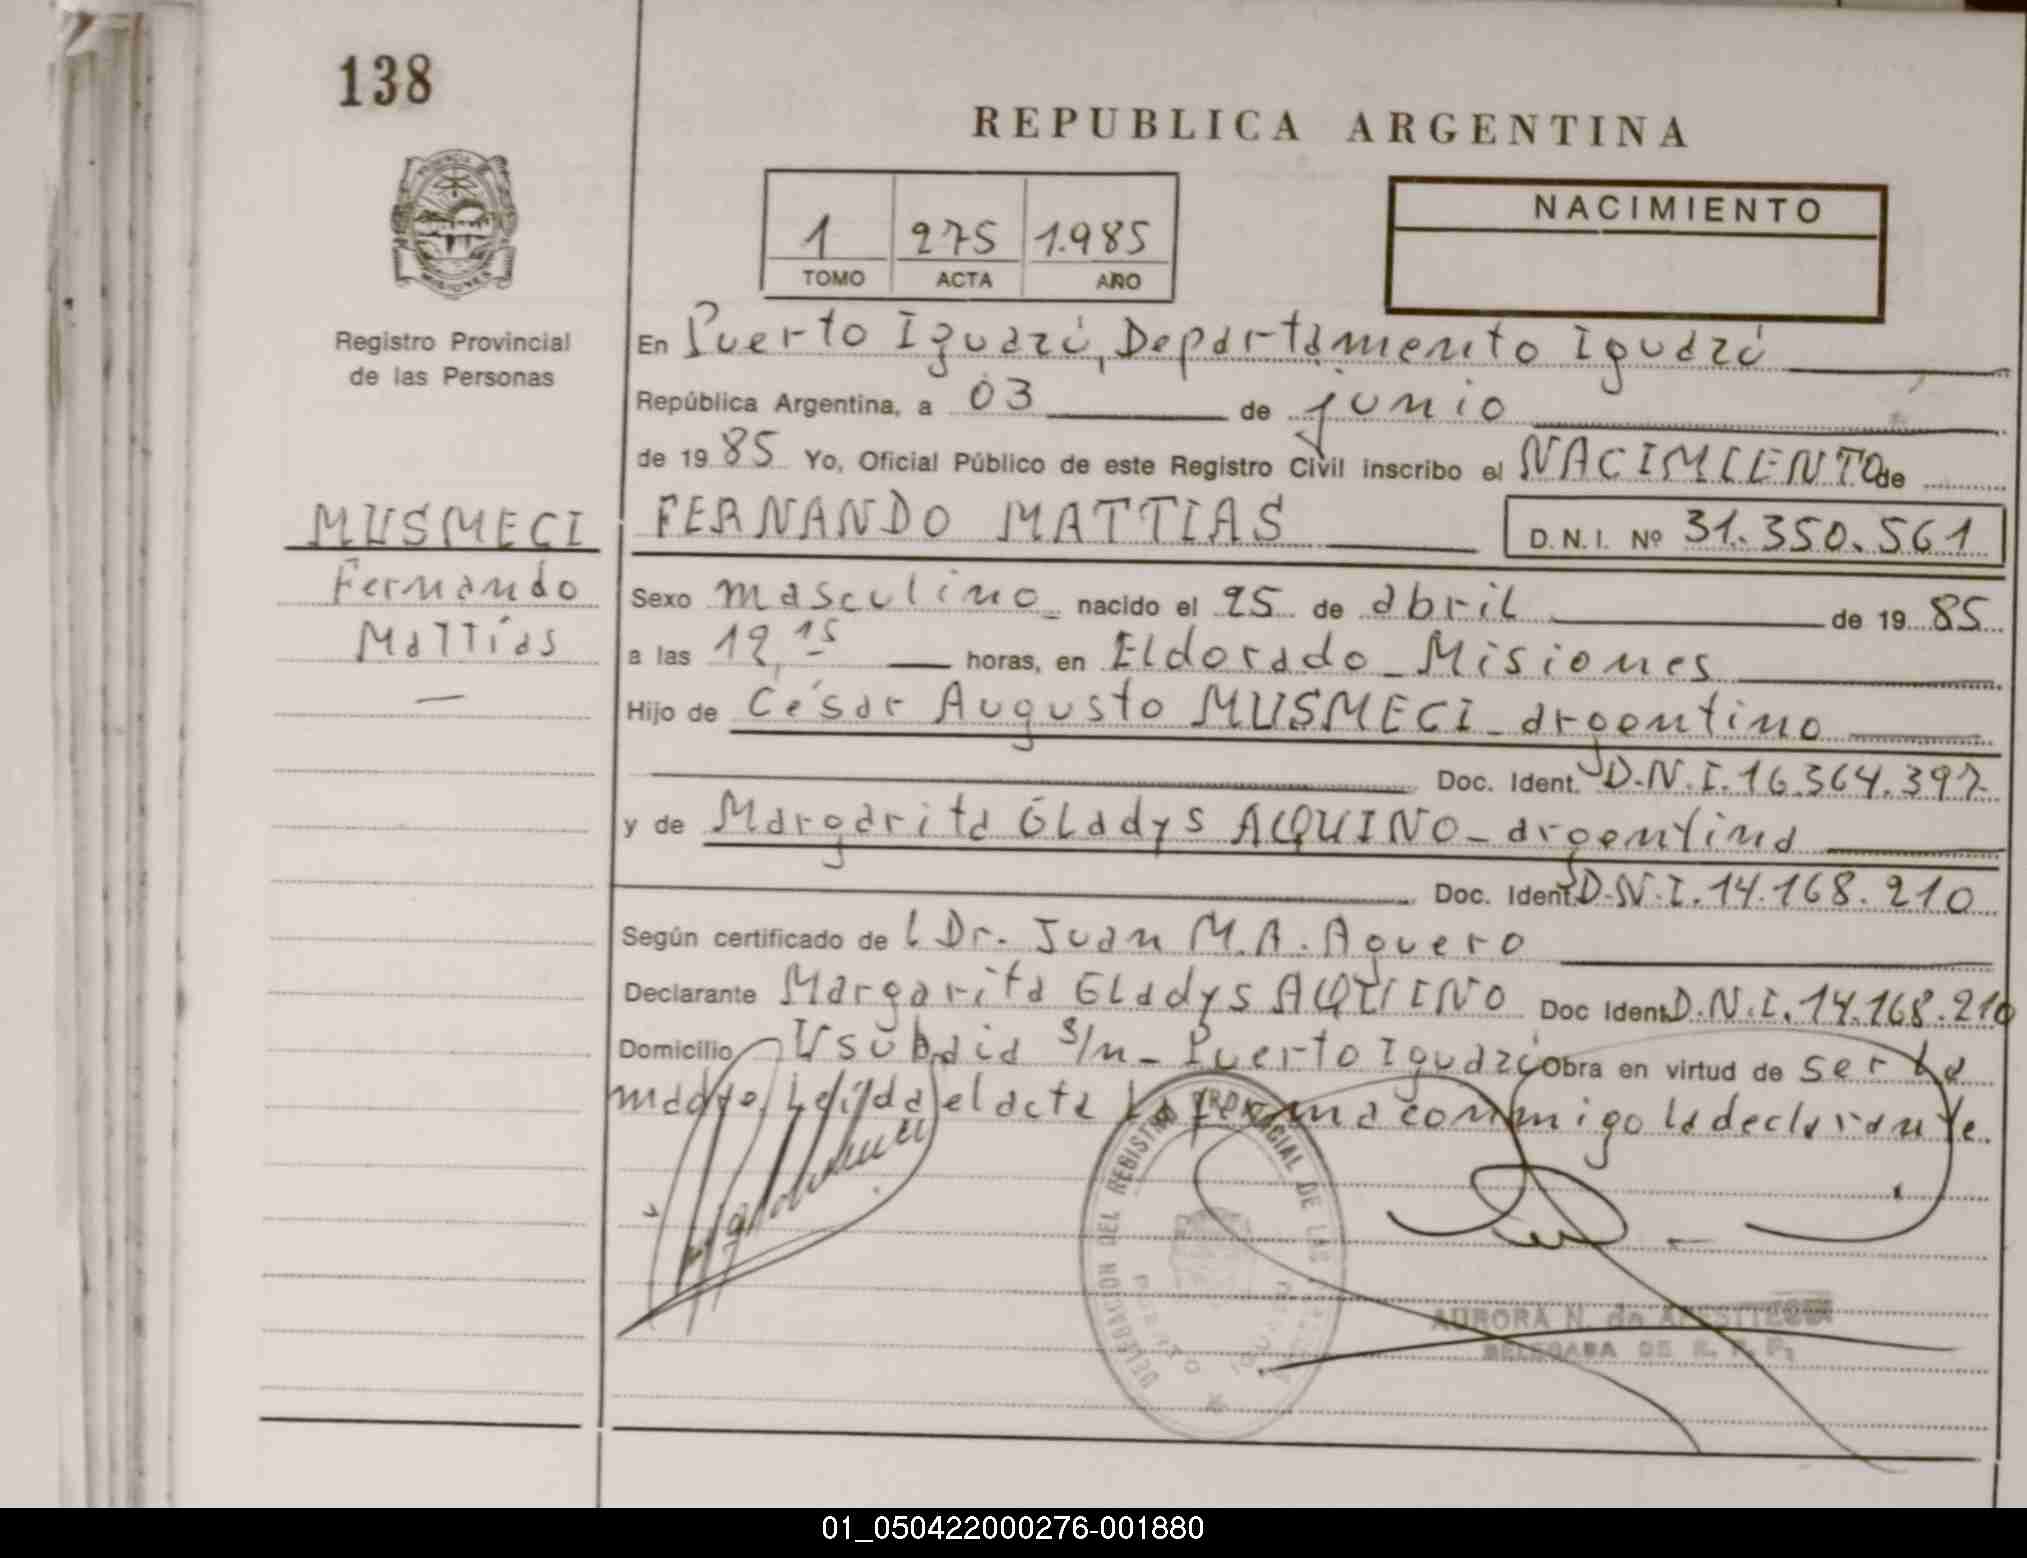 138
REPUBLICA ARGENTINA
NACIMIENTO
1 275 1.985
TOMO ACTA AÑO
Registro Provincial
de las Personas
En Puerto Iguazú, Departamento Iguazú
República Argentina, a 03 de junio
de 1985 Yo, Oficial Público de este Registro Civil inscribo el NACIMIENTO de
MUSMECI
Fernando
Mattías
FERNANDO MATTIAS D.N.I. Nº 31.350.561
Sexo masculino nacido el 25 de abril de 1985
a las 12,15 horas, en Eldorado - Misiones
Hijo de César Augusto MUSMECI - argentino
Doc. Ident. D.N.I. 16.364.397
y de Margarita Gladys AQUINO - argentina
Doc. Ident. D.N.I. 14.168.210
Según certificado de l Dr. Juan M.A. Aguero
Declarante Margarita Gladys AQUINO Doc Ident. D.N.I. 14.168.210
Domicilio s/n - Puerto Iguazú Obra en virtud de ser la
madre. Leída el acta la firma conmigo la declarante.
DELEGACION DEL REGISTRO PROVINCIAL DE LAS
PUERTO IGUAZU
AURORA N. de
DELEGADA DE R. P. P.
01_050422000276-001880